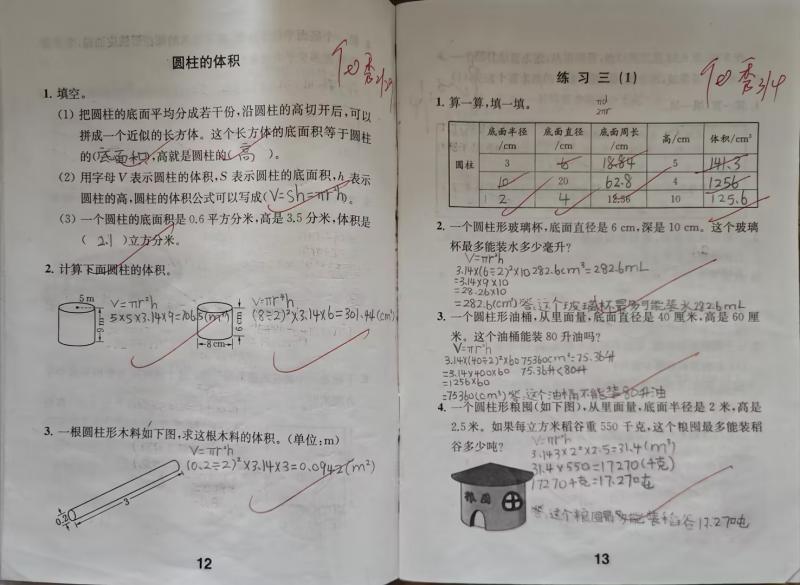 圆柱的体积
1. 填空。
(1) 把圆柱的底面平均分成若干份,沿圆柱的高切开后,可以
拼成一个近似的长方体。这个长方体的底面积等于圆柱
的(底面积),高就是圆柱的(高)。
(2) 用字母V表示圆柱的体积,S表示圆柱的底面积,h表示
圆柱的高,圆柱的体积公式可以写成(V=Sh=πr²h)。
(3) 一个圆柱的底面积是0.6平方分米,高是3.5分米,体积是
(2.1)立方分米。
2. 计算下面圆柱的体积。
5m
9m
V=πr²h
5×5×3.14×9=706.5(m³)
8cm
6cm
V=πr²h
(8÷2)²×3.14×6=301.44(cm³)
3. 一根圆柱形木料如下图,求这根木料的体积。(单位:m)
V=πr²h
(0.2÷2)²×3.14×3=0.0942(m²)
0.2
3
12
练习三(1)
1. 算一算,填一填。
πd
2πr
圆柱 底面半径/cm 底面直径/cm 底面周长/cm 高/cm 体积/cm³
3 6 18.84 5 141.3
10 20 62.8 4 1256
2 4 12.56 10 125.6
2. 一个圆柱形玻璃杯,底面直径是6 cm,深是10 cm。这个玻璃
杯最多能装水多少毫升?
V=πr²h
3.14×(6÷2)²×10 282.6cm³=282.6mL
=3.14×9×10
=28.26×10
=282.6(cm³) 答:这个玻璃杯最多可能装水282.6mL
3. 一个圆柱形油桶,从里面量,底面直径是40厘米,高是60厘
米。这个油桶能装80升油吗?
V=πr²h
3.14×(40÷2)²×60 75360cm³=75.36升
=3.14×400×60 75.36升<80升
=1256×60
=75360(cm³) 答:这个油桶不能装80升油
4. 一个圆柱形粮囤(如下图),从里面量,底面半径是2米,高是
2.5米。如果每立方米稻谷重550千克,这个粮囤最多能装稻
谷多少吨?
V=πr²h
3.14×2²×2.5=31.4(m³)
31.4×550=17270(千克)
17270千克=17.270吨
粮囤
答:这个粮囤最多能装稻谷17.270吨
13